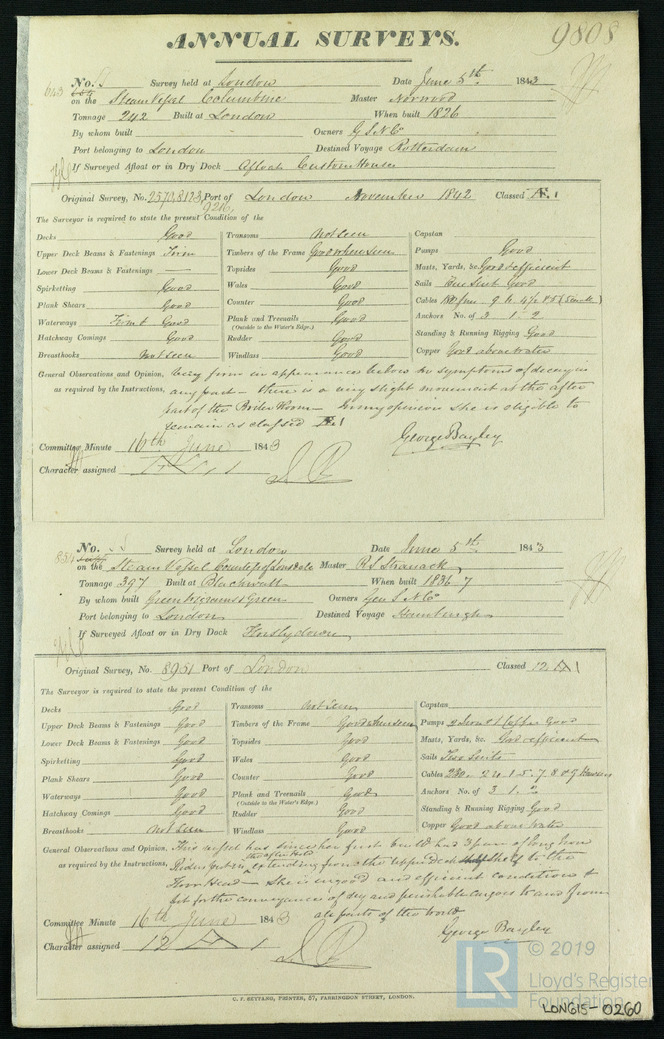 9808
ANNUAL SURVEYS.
No. Survey held at London Date June 5th 1843
on the Steam Vessel Columbine Master Norwood
Tonnage 242 Built at London When built 1826
By whom built Owners G S N Co
Port belonging to London Destined Voyage Rotterdam
If Surveyed Afloat or in Dry Dock Afloat Custom House
Original Survey, No. Port of London November 1842 Classed Æ 1
The Surveyor is required to state the present Condition of the
Decks Good Transoms Not seen Capstan
Upper Deck Beams & Fastenings Firm Timbers of the Frame Good where seen Pumps Good
Lower Deck Beams & Fastenings — Topsides Good Masts, Yards, &c. Good & efficient
Spirketting Good Wales Good Sails Good
Plank Shears Good Counter Good Cables
Waterways Firm & Good Plank and Treenails Good Anchors No. of 3 1. 2
(Outside to the Water's Edge.)
Hatchway Comings Good Rudder Good Standing & Running Rigging Good
Breasthooks Not seen Windlass Good Copper Good above water
General Observations and Opinion, Very firm in appearance before no symptoms of decay in
as required by the Instructions, any part — there is a any slight movement at the after
part of the Boiler Room — In my opinion she is eligible to
remain as classed Æ 1
George Bayley
Committee Minute 16th June 1843
Character assigned Æ 1
No. Survey held at London Date June 5th 1843
on the Steam Vessel Countess of Lonsdale Master R S Stranack
Tonnage 397 Built at Blackwall When built 1836.7
By whom built Green Wigrams & Green Owners Gen S N Co
Port belonging to London Destined Voyage Hamburgh
If Surveyed Afloat or in Dry Dock Horslydown
Original Survey, No. 8951 Port of London Classed 12 A 1
The Surveyor is required to state the present Condition of the
Decks Good Transoms Not seen Capstan
Upper Deck Beams & Fastenings Good Timbers of the Frame Good where seen Pumps Good
Lower Deck Beams & Fastenings Good Topsides Good Masts, Yards, &c. Good & efficient
Spirketting Good Wales Good Sails Two Suits
Plank Shears Good Counter Good Cables
Waterways Good Plank and Treenails Good Anchors No. of 3. 1. 2
(Outside to the Water's Edge.)
Hatchway Comings Good Rudder Good Standing & Running Rigging Good
Breasthooks Not seen Windlass Good Copper Good above water
General Observations and Opinion, This vessel has since her first build had 3 pair of long Iron
the after Hold
as required by the Instructions, Riders put in extending from the upper deck shelf to the
Floor Head — She is in good and efficient conditions &
fit for the conveyance of dry and perishable cargoes to and from
all parts of the world
George Bayley
Committee Minute 16th June 1843
Character assigned 12 A 1
C. F. SEYFANG, PRINTER, 57, FARRINGDON STREET, LONDON.
LR © 2019
Lloyd's Register
Foundation
LON615-0260